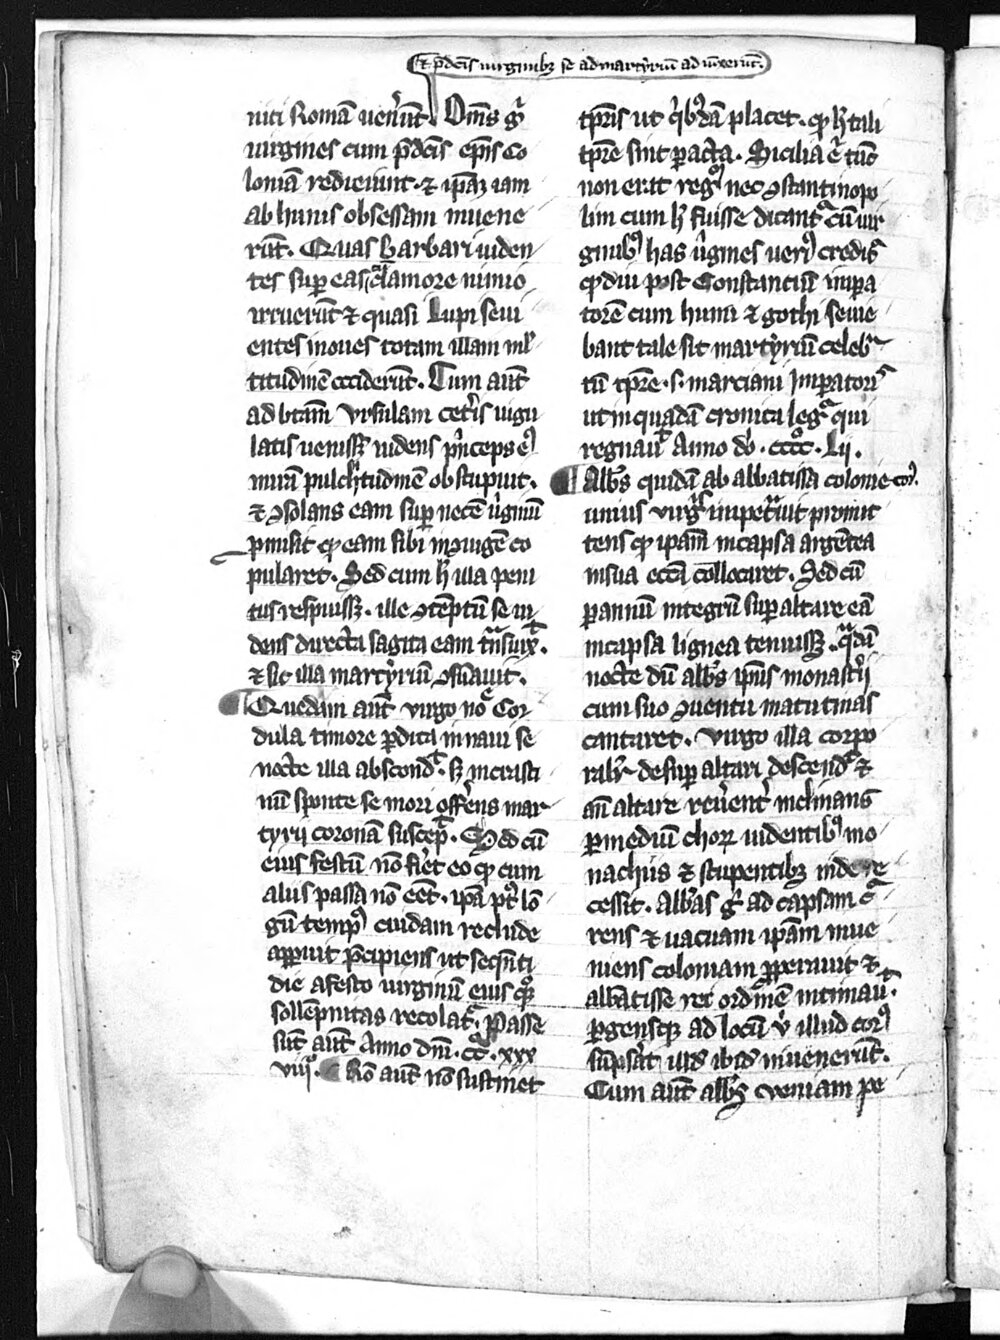 Et p̄dcīs uirginibꝫ se ad martyriū adiūxerūt.
niti Romā uen̄unt. Om̄s gͥ
uirgines cum p̄dcīs ep̄is co
loniā redierunt. ⁊ ip̄aꝫ iam
ab hunis obsessam inuene
rūt. Quas barbari uiden
tes sup eas clamore nimio
irruerūt ⁊ quasi lupi seui
entes in oues totam illam ml̓
titudinē occiderūt. Cum aūt
ad btām Vrsulam cetīs iugu
latis uenissꝫ uidens p̓nceps eꝰ
mirā pulchͥtudinē obstupuit.
⁊ ꝯsolans eam sup necē ūginū
ꝓmisit ꝙ eam sibi in ꝯiugē co
pularet. Sed cum h̓ illa peni
tus respuissꝫ. ille ꝯtēptū se ui
dens directa sagita eam tͣnsfixͭ.
⁊ sic illa martyriū ꝯsūauit.
Quedam aūt uirgo noīe Cor
dula timore ꝑdita in naui se
nocte illa abscondͭ. sꝫ in crasti
nū sponte se mori offerens mar
tyrij coronā suscepͭ. Sed cū
eius festū nō fieret eo ꝙ cum
alijs passa nō eēt. ip̄a pͭ lō
gū tempꝰ cuidam recluse
apparuit p̄cipiens ut seqūti
die a festo uirginū eius qͦꝫ
sollēpnitas recolatͬ. Passe
sūt aūt Anno dn̄i. cͨc. xxx
viijͦ. Rō aūt nō sustinet
tp̄ris ut qͥbꝰdā placet. ꝙ h̓ tali
tp̄re sint ꝑacta. Sicilia .n. tūc
non erat regnū nec ꝯstantinopo
lim cum h̓ fuisse dicantͬ cū uir
ginibꝰ has ūgines ueriꝰ creditͬ
ꝙ diu post Constanciū impa
torē cum huni ⁊ gothi seuie
bant tale sit martyriū celebͣ
tū tp̄re .s. marciani Imperatorͥs
ut in quadā cronica legitͬ qui
regnauͭ Anno dō. ccccͦ. Lij.
Abb̄s quidā ab abbatissa colonie corꝰ
unius virgͥs impetͣuit promit
tens ꝙ ipam̄ in capsa argētea
in sua ecc̄a collocaret. Sed cū
ꝑ annū integrū sup altare eā
in capsa lignea tenuissꝫ. qͣdā
nocte dū abb̄s ip̄ius monastͥij
cum suo ꝯuentu matutinas
cantaret. Virgo illa corpo
ralͥr desup altari descendͭ ⁊
an̄ altare reuerentͬ inclinans
ꝑ mediū choꝝ uidentibꝰ mo
nachis ⁊ stupentibꝫ inde re
cessit. Abbas gͥ ad capsam cͬ
rens ⁊ uacuam ip̄am inue
niens coloniam ꝓperauit ⁊
abbatisse rei ordinē intimauͭ.
ꝑgensqꝫ ad locū vͥ illud corꝰ
sūpserat illd ibid inuenerūt.
Cum aūt abb̄s ueniam pe